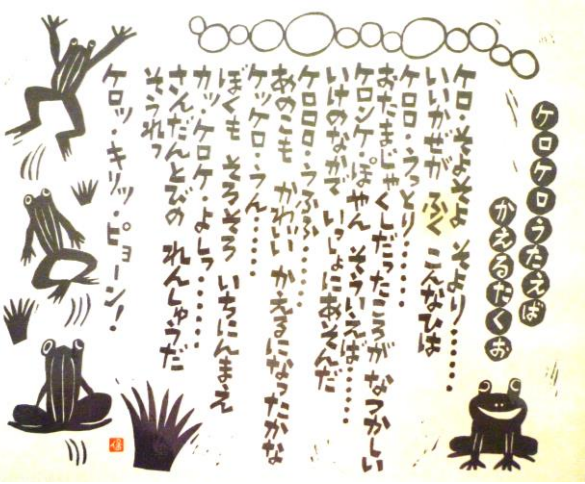 ケロケロうたえば
かえるたくお
ケロ・そよそよ そより……
いいかぜが ふく こんなひは
ケロロ・うっとり……
おたまじゃくしだったころが なつかしい
ケロンケ・ぽやん そういえば……
いけのなかで いっしょにあそんだ
ケロロロ・うふふ……
あのこも かわいい かえるになったかな
ケッケロ・うん……
ぼくも そろそろ いちにんまえ
カッ ケロケ・よしっ……
さんだんとびの れんしゅうだ
そうれっ
ケロッ・キリッ・ピョーン！
信